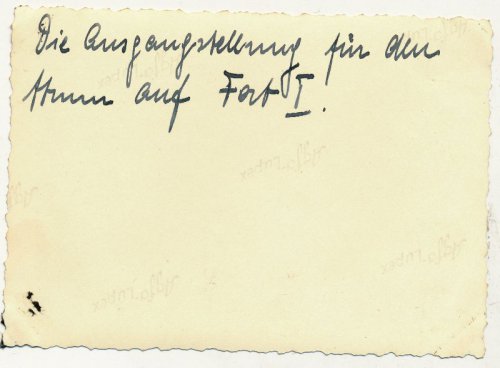 Die Ausgangstellung für den
Sturm auf Fort I.
Agfa Lupex
Agfa Lupex
Agfa Lupex
Agfa Lupex